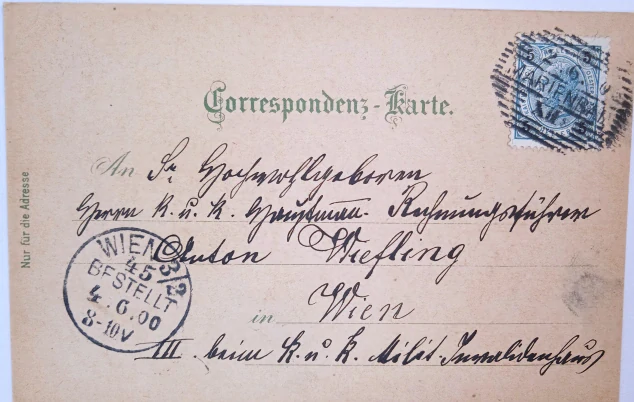 Correspondenz-Karte.
An Sr Hochwohlgeboren
Herrn k. u. k. Hauptman- Rechnungsführer
Anton Wiefling
in Wien
III. beim k. u. k. Milit. Invalidenhaus
Nur für die Adresse.
WIEN 3/2
45
BESTELLT
4.6.00
8-10V
MARIENBAD